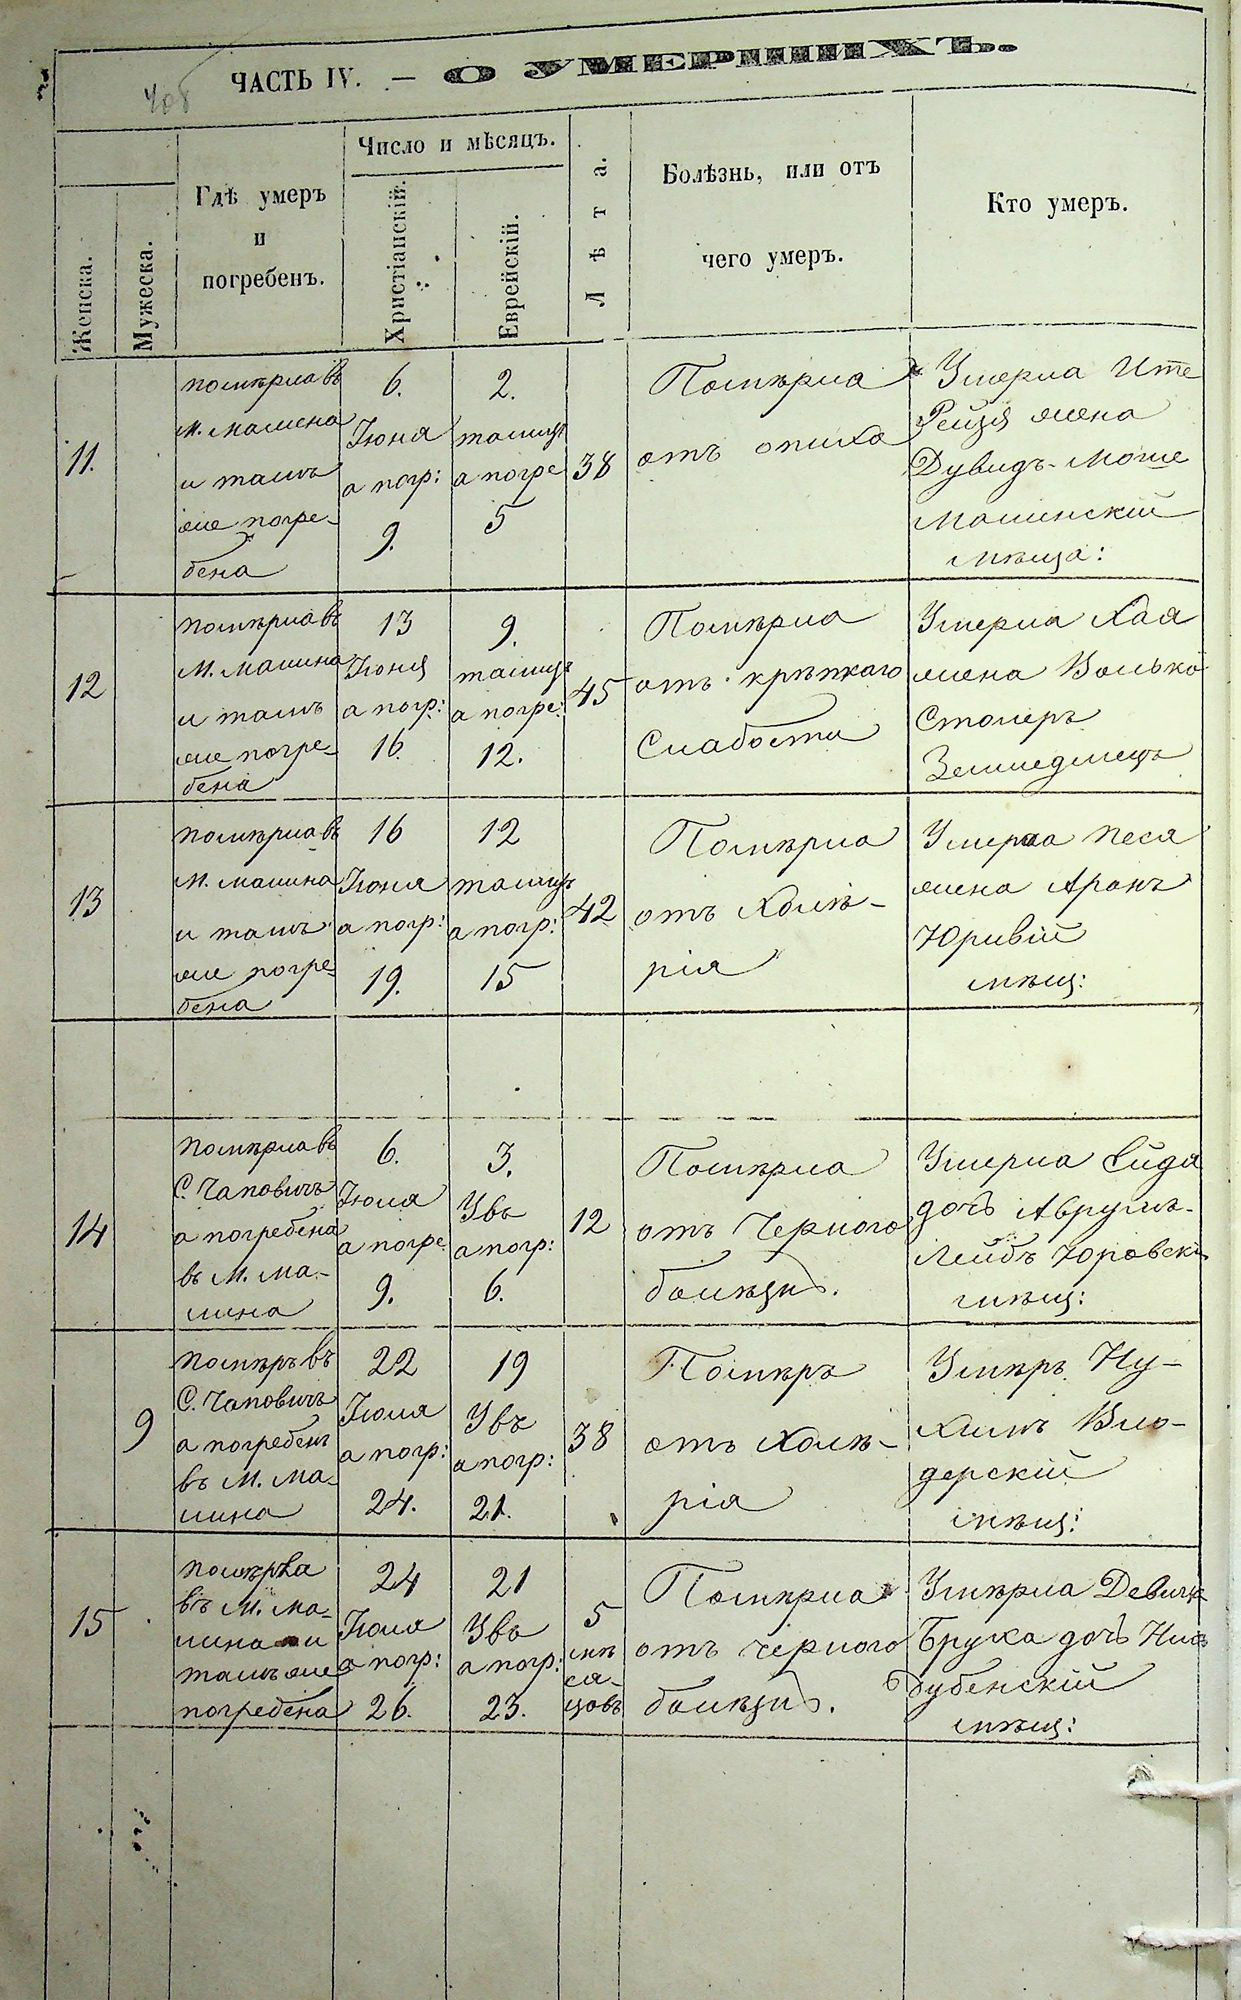 ЧАСТЬ IV. — О УМЕРШИХЪ.
Женска.
Мужеска.
Гдѣ умеръ
и
погребенъ.
Число и мѣсяцъ.
Христіанскій.
Еврейскій.
Лѣта.
Болѣзнь, или отъ
чего умеръ.
Кто умеръ.
11.
помѣрла въ
М. Малина
и тамъ
же погре-
бена
6.
Іюня
а погр:
9.
2.
тамузъ
а погре
5
38
Помѣрла
отъ опиха
Умерла Ите
Рейзя жена
Дувидъ-Моше
Малинскій
мѣща:
12
помѣрла въ
М. Малина
и тамъ
же погре-
бена
13
Іюня
а погр:
16.
9.
тамузъ
а погре:
12.
45
Помѣрла
отъ крѣпкаго
Слабости
Умерла Хая
жена Волько
Столеръ
Земледлецъ
13
помѣрла въ
М. Малина
и тамъ
же погре-
бена
16
Іюня
а погр:
19.
12
тамузъ
а погр:
15
42
Помѣрла
отъ Холѣ-
рія
Умерла Песя
жена Аронъ
Юривій
мѣщ:
14
помѣрла въ
С. Чаповичъ
а погребена
въ М. Ма-
лина
6.
Іюля
а погре
9.
3.
Увъ
а погр:
6.
12
Помѣрла
отъ Черного
болѣзнь.
Умерла Сида
дочь Аврумъ-
Лейбъ Юровскі
мѣщ:
9
помѣръ въ
С. Чаповичъ
а погребенъ
въ М. Ма-
лина
22
Іюля
а погр:
24.
19
Увъ
а погр:
21.
38
Помѣръ
отъ Холѣ-
рія
Умѣръ Ну-
химъ Вло-
дерскій
мѣщ:
15
помѣрла
въ М. Ма-
лина и
тамъ же
погребена
24
Іюля
а погр:
26.
21
Увъ
а погр:
23.
5
мѣ
ся-
цовъ
Помѣрла
отъ черного
болѣзнь.
Умѣрла
Брука дочь
Дубенскій
мѣщ: